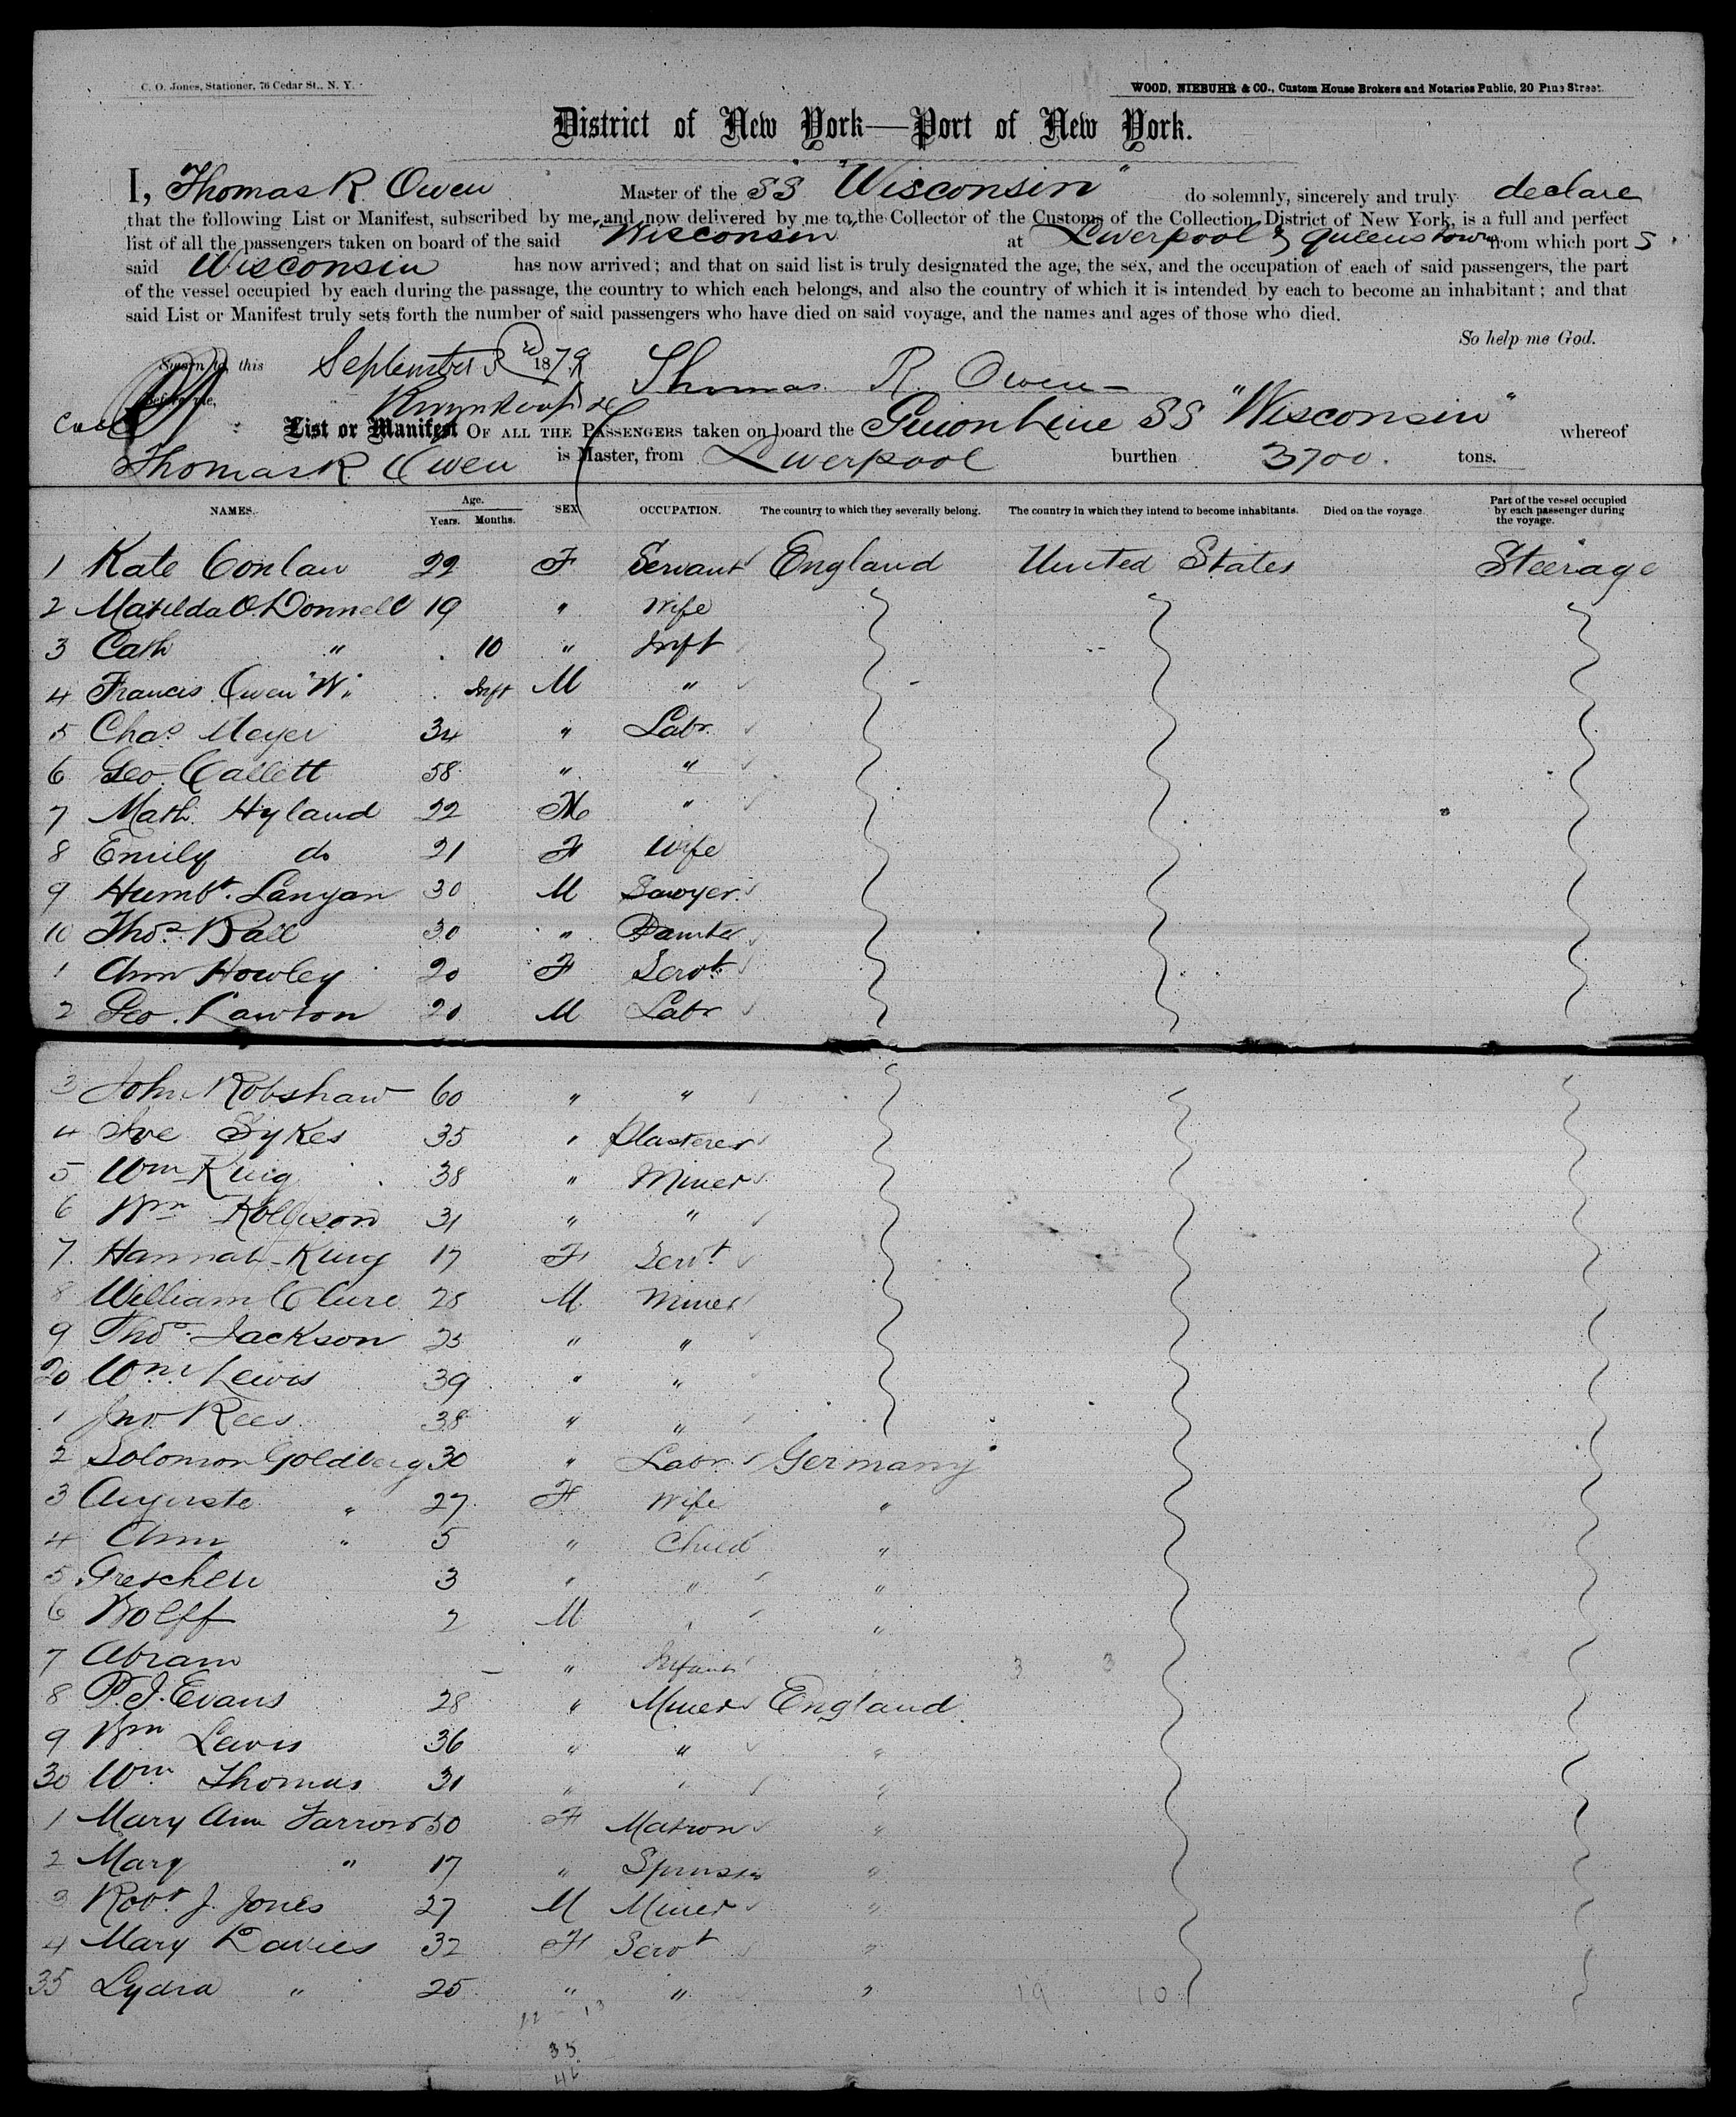 C. O. Jones, Stationer, 76 Cedar St., N. Y.
WOOD, NIEBUHR & CO., Custom House Brokers and Notaries Public, 20 Pine Street.
District of New York—Port of New York.
I, Thomas R Owen Master of the SS "Wisconsin" do solemnly, sincerely and truly declare
that the following List or Manifest, subscribed by me, and now delivered by me to the Collector of the Customs of the Collection District of New York, is a full and perfect
list of all the passengers taken on board of the said "Wisconsin" at Liverpool & Queenstown from which port s
said Wisconsin has now arrived; and that on said list is truly designated the age, the sex, and the occupation of each of said passengers, the part
of the vessel occupied by each during the passage, the country to which each belongs, and also the country of which it is intended by each to become an inhabitant; and that
said List or Manifest truly sets forth the number of said passengers who have died on said voyage, and the names and ages of those who died.
So help me God.
Sworn to, this September 3rd 1879 Thomas R. Owen
Before me,
List or Manifest OF ALL THE PASSENGERS taken on board the Guion Line SS "Wisconsin" whereof
Thomas R. Owen is Master, from Liverpool burthen 3700. tons.
NAMES. Age. Years. Months. SEX OCCUPATION. The country to which they severally belong. The country in which they intend to become inhabitants. Died on the voyage. Part of the vessel occupied by each passenger during the voyage.
1 Kate Conlan 22 F Servant England United States Steerage
2 Matilda O.Donnell 19 " Wife
3 Cath " 10 " Inft
4 Francis Owen "W" Inft M "
5 Chas Meyer 34 " Labr.
6 Geo. Callett 58 " "
7 Math. Hyland 22 M "
8 Emily do 21 F Wife
9 Humbt. Lanyan 30 M Sawyer
10 Thos Ball 30 " Painter
1 Ann Howley 20 F Servt
2 Geo. Lawton 20 M Labr
3 John Robshaw 60 " "
4 Sykes 35 " plasterer
5 Wm King 38 " Miner
6 Wm 31 " "
7. Hannah King 17 F Servt
8 William Clure 28 M Miner
9 Thos. Jackson 23 " "
20 Wm Lewis 39 " "
1 Jno. Rees 38 " "
2 Solomon Goldberg 30 " Labr. Germany
3 Auguste " 27 F Wife "
4 Ann " 5 " Child "
5 Gretchen 3 " " "
6 Wolff 2 M " "
7 Abram – " Infant " 3 3
8 P. J. Evans 28 " Miner England
9 Wm Lewis 36 " " "
30 Wm Thomas 31 " " "
1 Mary Ann Farrow 50 F Matron "
2 Mary " 17 " Spinster "
3 Robt. J. Jones 27 M Miner "
4 Mary Davies 32 F Servt "
35 Lydia " 25 " " " 19 10
22 13
35